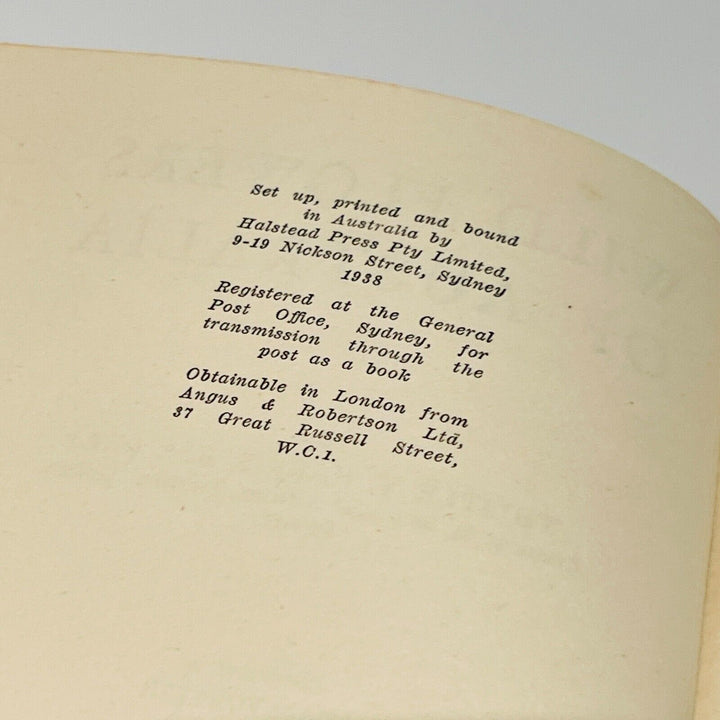 Set up, printed and bound
in Australia by
Halstead Press Pty Limited,
9-19 Nickson Street, Sydney
1938
Registered at the General
Post Office, Sydney, for
transmission through the
post as a book
Obtainable in London from
Angus & Robertson Ltd,
37 Great Russell Street,
W.C.1.